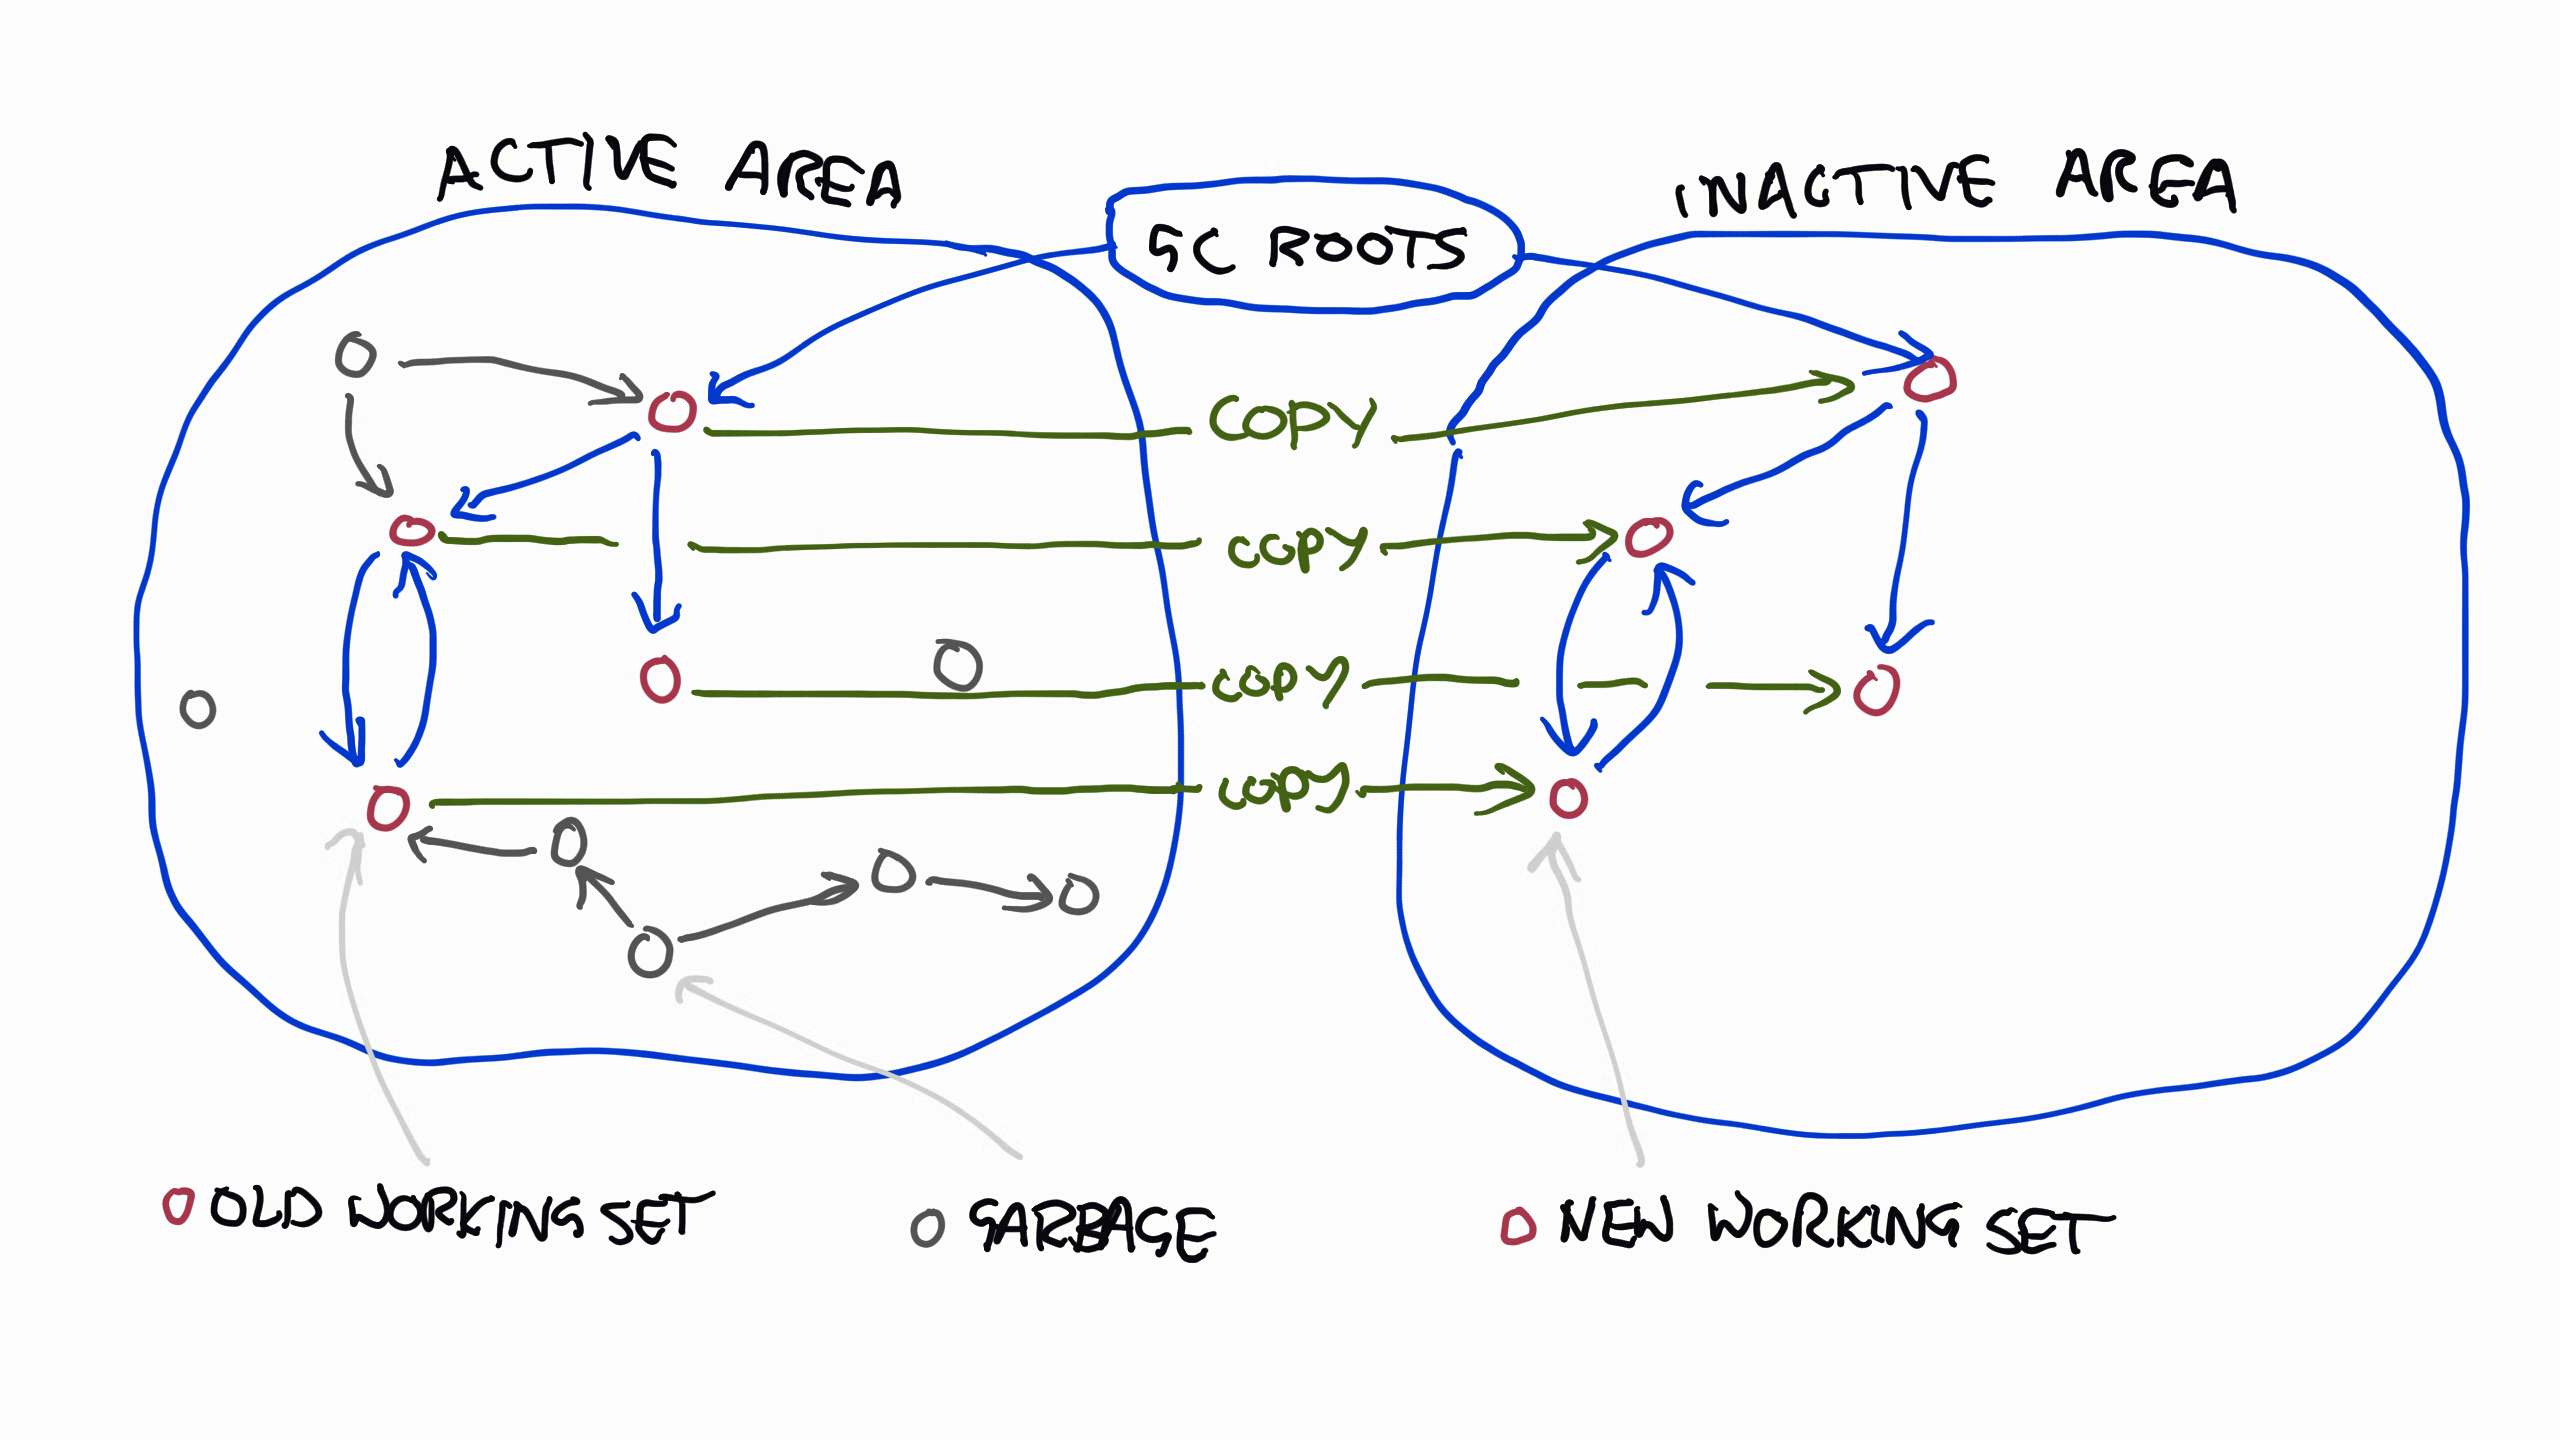 ACTIVE AREA
GC ROOTS
INACTIVE AREA
COPY
COPY
COPY
COPY
OLD WORKING SET
GARBAGE
NEW WORKING SET